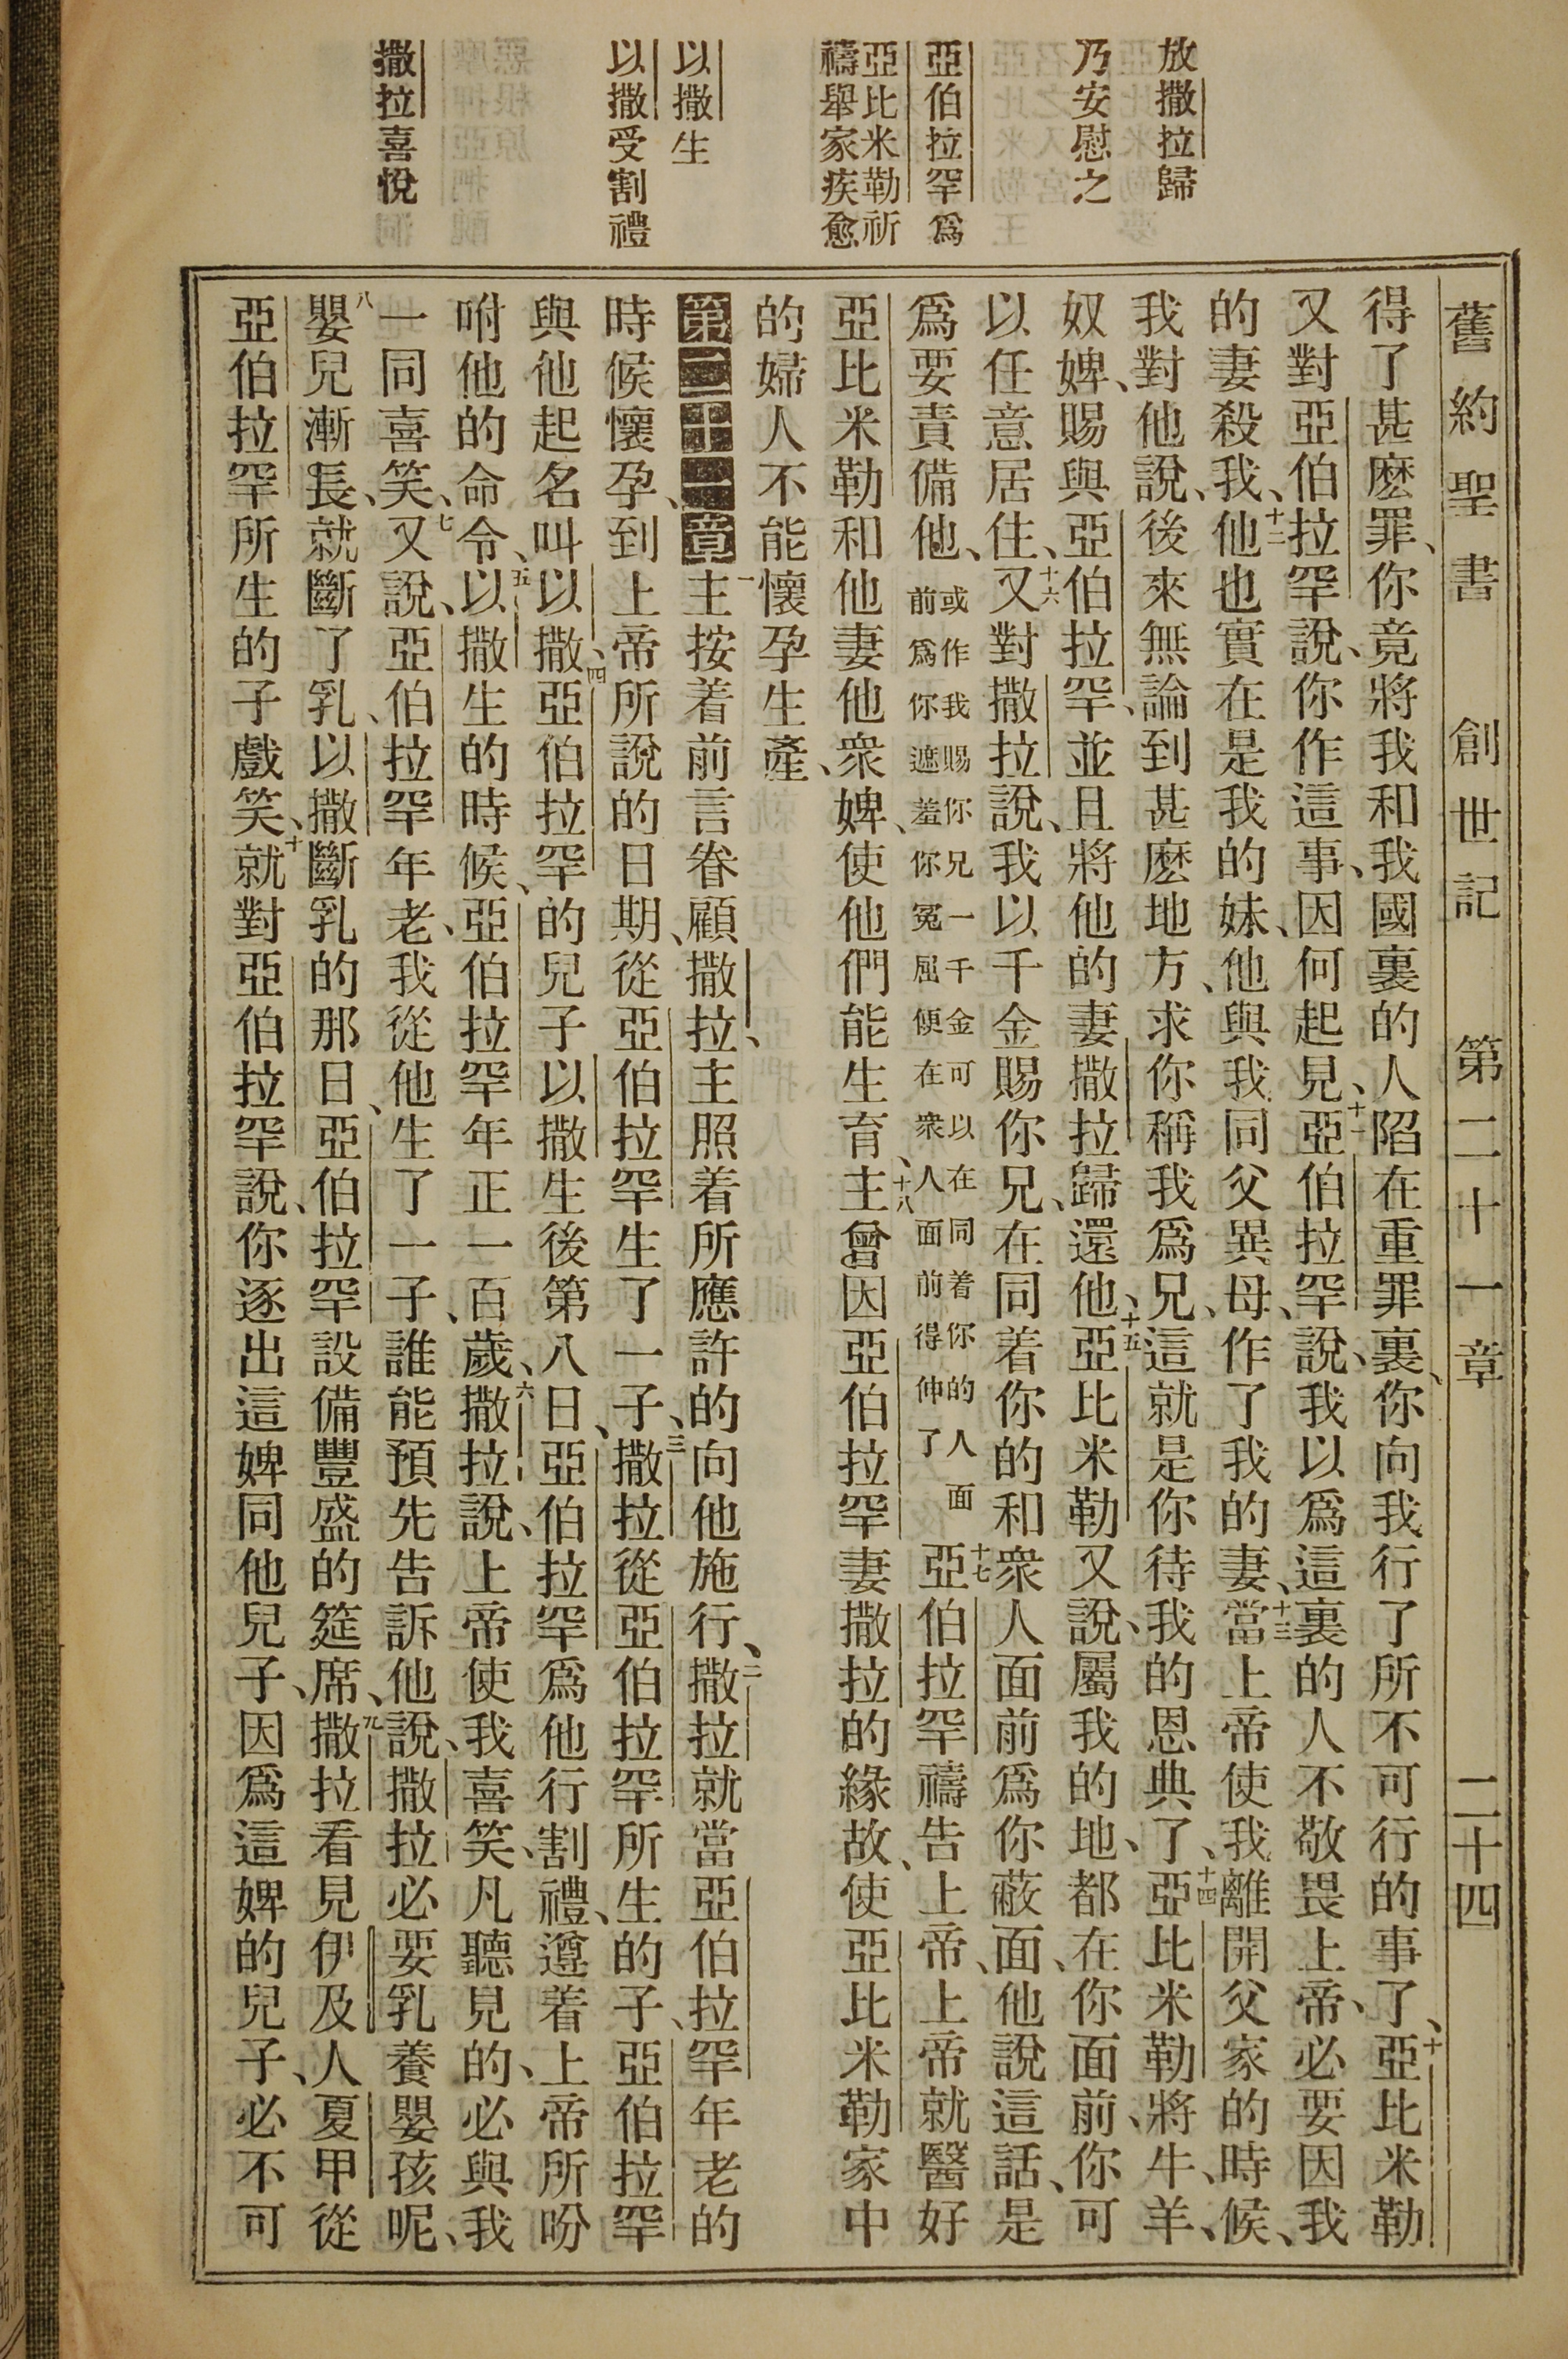 放撒拉歸
乃安慰之
亞伯拉罕爲
亞比米勒祈
禱舉家疾愈
以撒生
以撒受割禮
撒拉喜悅
舊約聖書 創世記 第二十一章 二十四
得了甚麽罪、你竟將我和我國裏的人陷在重罪裏、你向我行了所不可行的事了、十亞比米勒
又對亞伯拉罕說、你作這事、因何起見、十一亞伯拉罕說、我以爲這裏的人不敬畏上帝、必要因我
的妻殺我、十二他也實在是我的妹、他與我同父異母、作了我的妻、十三當上帝使我離開父家的時候、
我對他說、後來無論到甚麽地方、求你稱我爲兄、這就是你待我的恩典了、十四亞比米勒將牛、羊、
奴婢、賜與亞伯拉罕、並且將他的妻撒拉歸還他、十五亞比米勒又說、屬我的地、都在你面前、你可
以任意居住、十六又對撒拉說、我以千金賜你兄、在同着你的和衆人面前爲你蔽面、他說這話、是
爲要責備他、或作我賜你兄一千金可以在同着你的人面前爲你遮羞你冤屈便在衆人面前得伸了十七亞伯拉罕禱告上帝、上帝就醫好
亞比米勒和他妻他衆婢、使他們能生育、十八主曾因亞伯拉罕妻撒拉的緣故、使亞比米勒家中
的婦人不能懷孕生產、
第二十一章一主按着前言眷顧撒拉、主照着所應許的向他施行、二撒拉就當亞伯拉罕年老的
時候懷孕、到上帝所說的日期、從亞伯拉罕生了一子、三撒拉從亞伯拉罕所生的子、亞伯拉罕
與他起名叫以撒、四亞伯拉罕的兒子以撒生後第八日、亞伯拉罕爲他行割禮、遵着上帝所吩
咐他的命令、五以撒生的時候、亞伯拉罕年正一百歲、六撒拉說、上帝使我喜笑、凡聽見的、必與我
一同喜笑、七又說、亞伯拉罕年老、我從他生了一子、誰能預先告訴他說、撒拉必要乳養嬰孩呢、
八嬰兒漸長、就斷了乳、以撒斷乳的那日、亞伯拉罕設備豐盛的筵席、九撒拉看見伊及人夏甲從
亞伯拉罕所生的子戲笑、十就對亞伯拉罕說、你逐出這婢同他兒子、因爲這婢的兒子、必不可